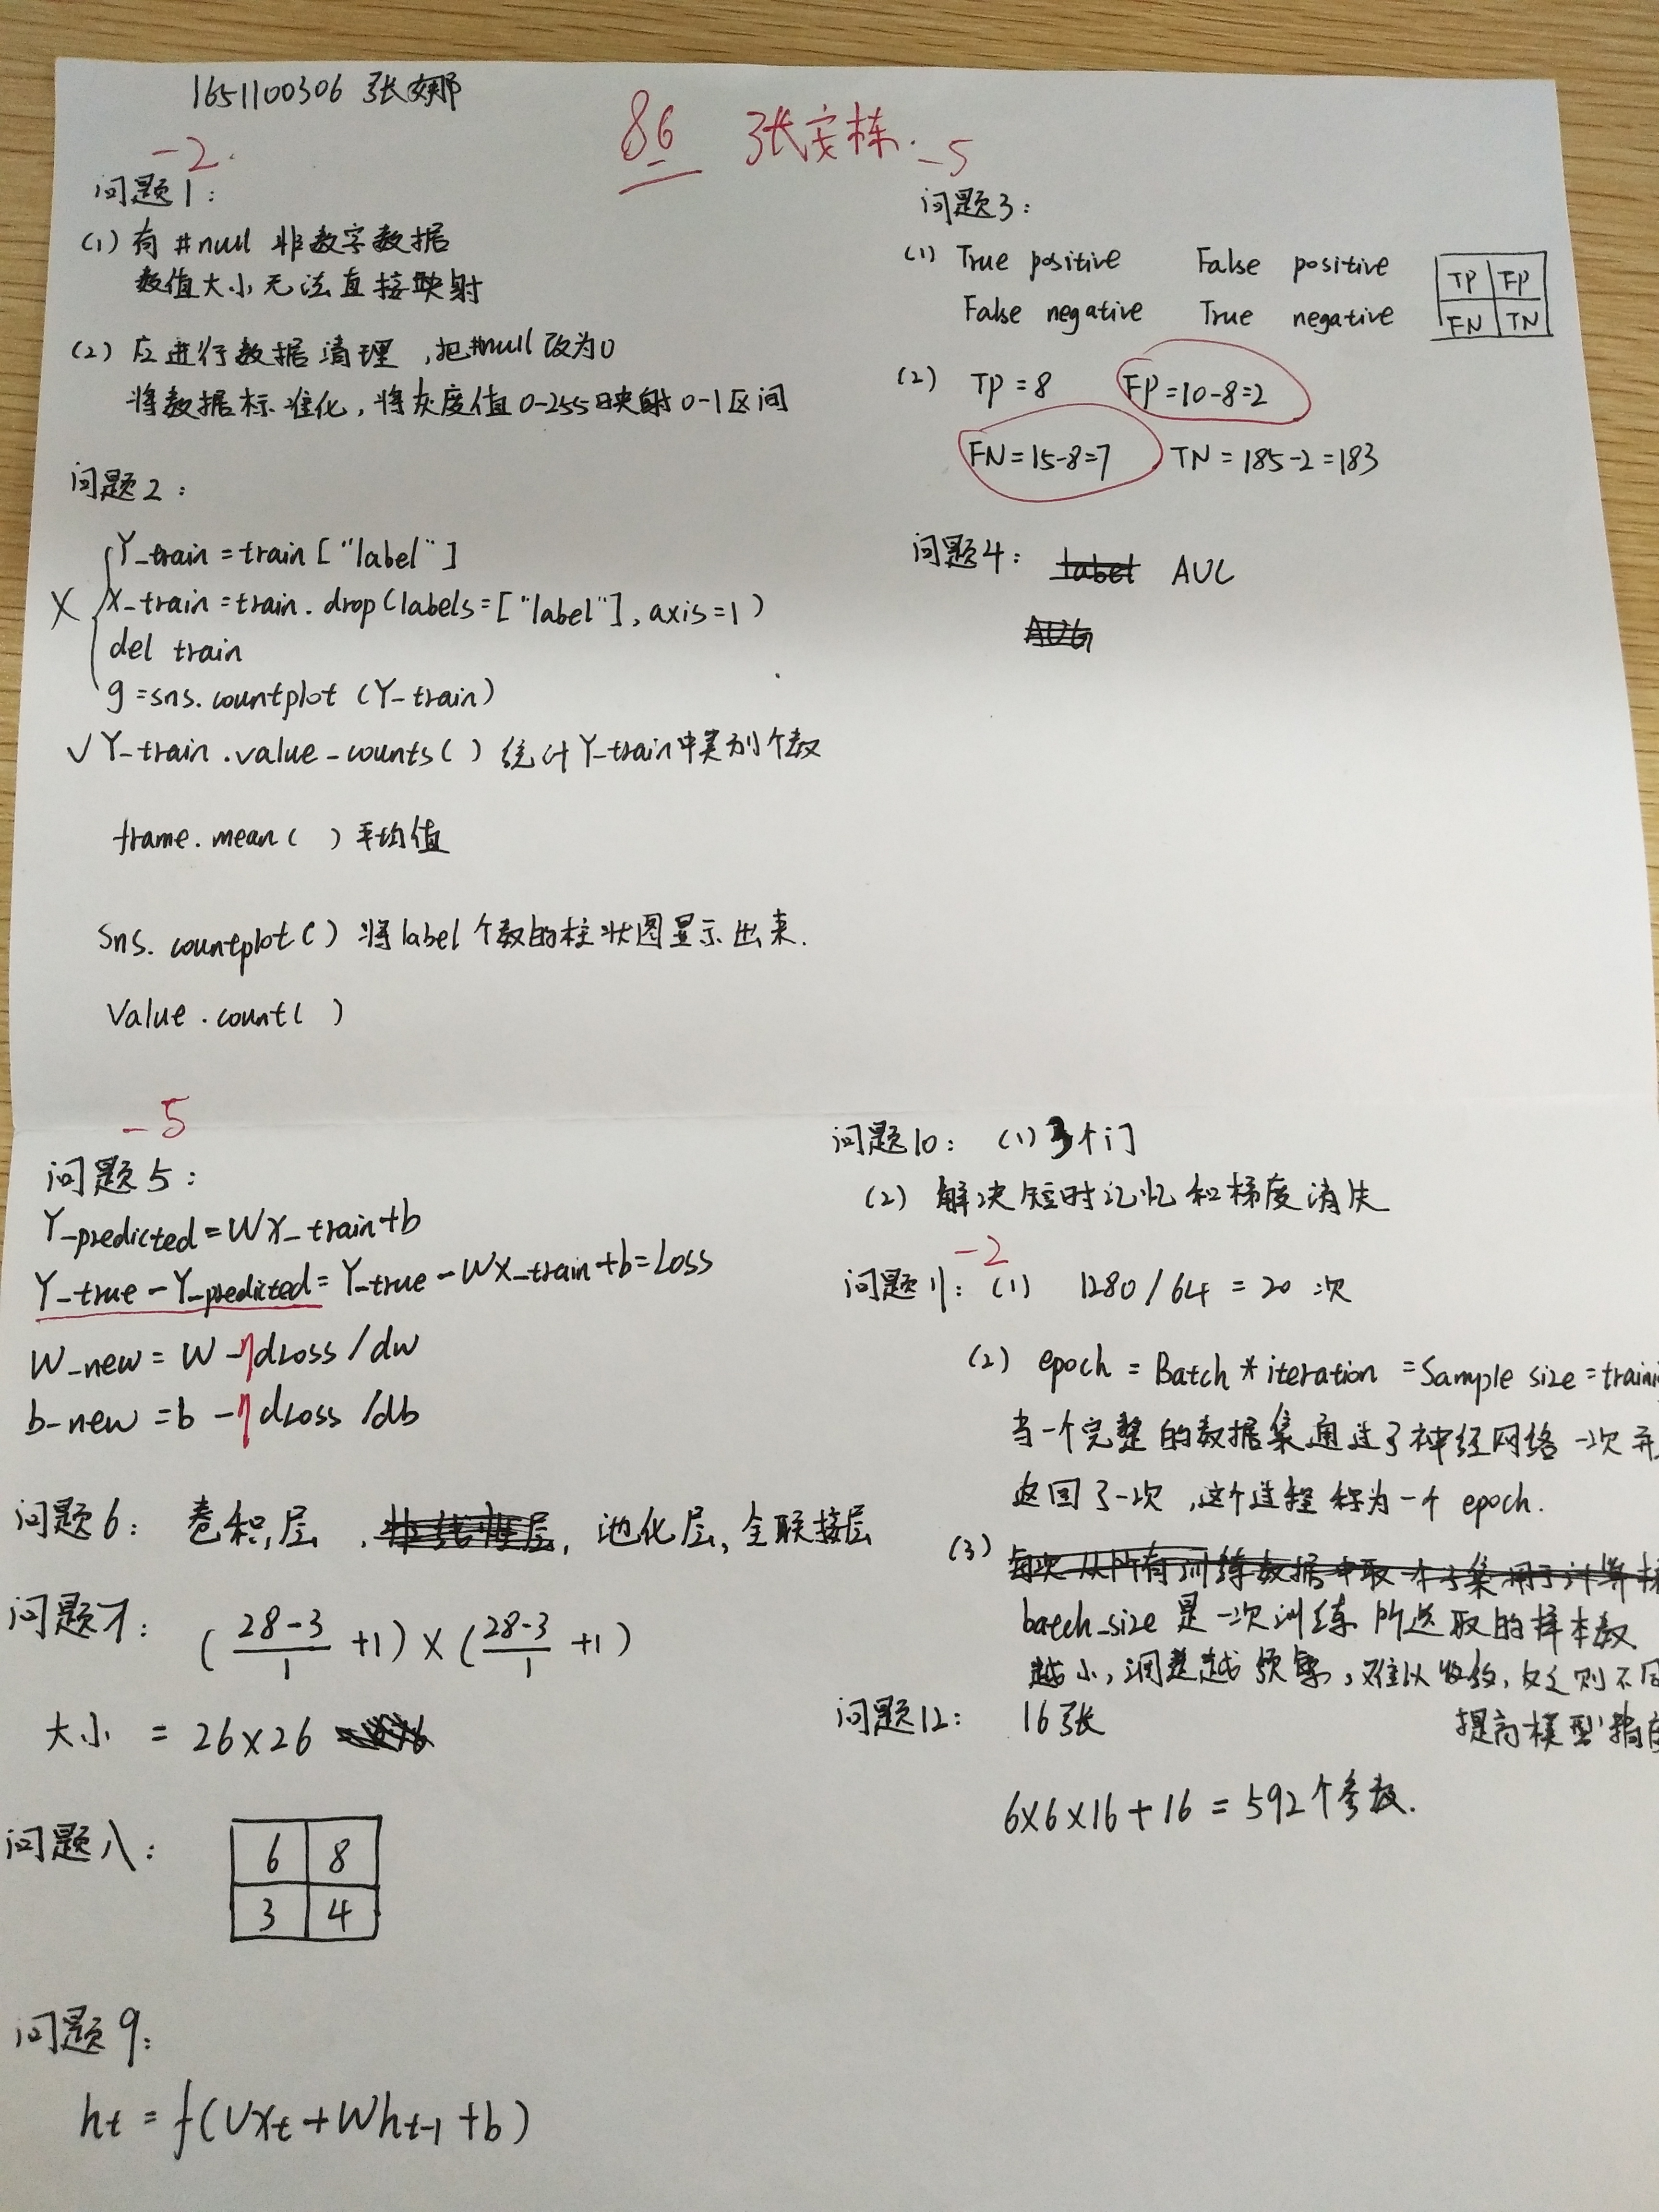 1651100306 张娜
86 张安栋.
-2
问题1:
(1) 有 #null 非数字数据
数值大小无法直接映射
(2) 应进行数据清理,把#null改为0
将数据标准化,将灰度值0-255映射0-1区间
问题2:
Y_train = train["label"]
X
X_train = train.drop(labels=["label"], axis=1)
del train
g = sns.countplot (Y_train)
✓ Y_train.value_counts( ) 统计Y_train中类别个数
frame.mean( ) 平均值
sns. countplot( ) 将label个数的柱状图显示出来.
Value.count( )
-5
问题3:
(1) True positive False positive
False negative True negative
TP FP
FN TN
(2) TP = 8 FP=10-8=2
FN=15-8=7 TN=185-2=183
问题4: label AUC
AUG
-5
问题5:
Y_predicted = WX_train+b
Y_true - Y_predicted = Y_true - WX_train+b = Loss
W_new = W - ηdLoss/dw
b_new = b - ηdLoss/db
问题6: 卷积层, 非线性层, 池化层, 全联接层
问题7: (28-3/1 +1) × (28-3/1 +1)
大小 = 26×26
问题八:
6 8
3 4
问题9:
ht = f(Uxt + Wht-1 + b)
问题10: (1) 3个门
(2) 解决短时记忆和梯度消失
-2
问题11: (1) 1280/64 = 20 次
(2) epoch = Batch * iteration = Sample size = traini
当一个完整的数据集通过了神经网络一次并
返回了一次,这个过程称为一个 epoch.
(3) 每次从所有训练数据中取一个子集用于计算
batch_size 是一次训练所选取的样本数
越小,误差越频繁,难以收敛,反之则不同
提高模型精度
问题12: 16张
6×6×16 + 16 = 592个参数.